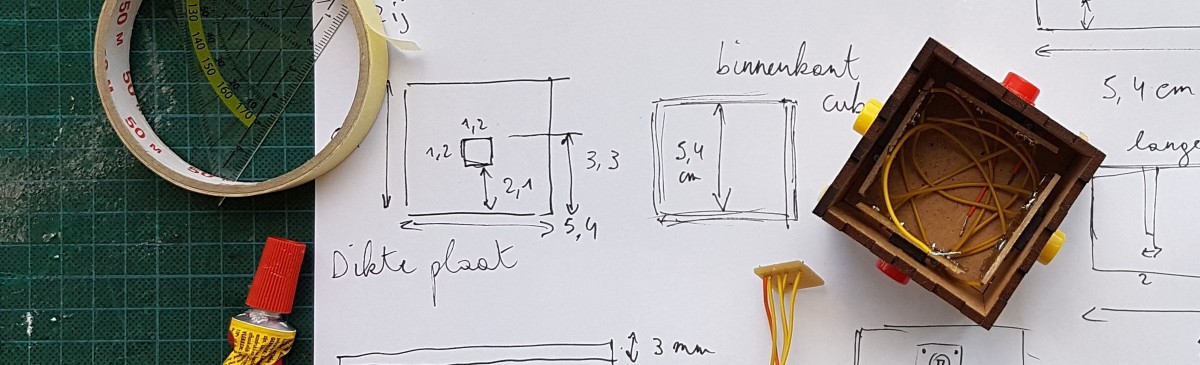 zij
50 M
50 M
50 M
50
130
140
150
160
170
1,2
1,2
2,1
3,3
5,4
Dikte plaat
3 mm
binnenkant
cub
5,4
cm
5,4 cm
lange
2